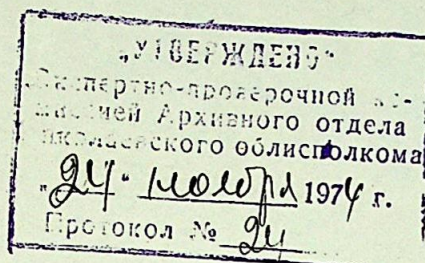 „УТВЕРЖДЕНО"
Экспертно-проверочной ко-
миссией Архивного отдела
николаевского облисполкома
"24" ноября 1974 г.
Протокол № 24